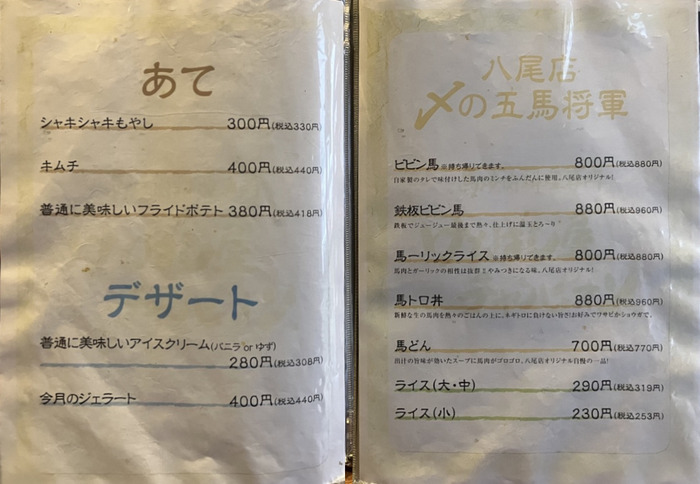 あて
シャキシャキもやし 300円(税込330円)
キムチ 400円(税込440円)
普通に美味しいフライドポテト 380円(税込418円)
デザート
普通に美味しいアイスクリーム(バニラ or ゆず)
280円(税込308円)
今月のジェラート 400円(税込440円)
八尾店
〆の五馬将軍
ビビン馬 ※持ち帰りできます。 800円(税込880円)
自家製のタレで味付けした馬肉のミンチをふんだんに使用。八尾店オリジナル!
鉄板ビビン馬 880円(税込960円)
鉄板でジュージュー最後まで熱々。仕上げに温玉とろ〜り
馬ーリックライス ※持ち帰りできます。 800円(税込880円)
馬肉とガーリックの相性は抜群!やみつきになる味。八尾店オリジナル!
馬トロ丼 880円(税込960円)
新鮮な生の馬肉を熱々のごはんの上に。ネギトロに負けない旨さ!お好みでワサビかショウガで。
馬どん 700円(税込770円)
出汁の旨味が効いたスープに馬肉がゴロゴロ。八尾店オリジナル自慢の一品!
ライス(大・中) 290円(税込319円)
ライス(小) 230円(税込253円)